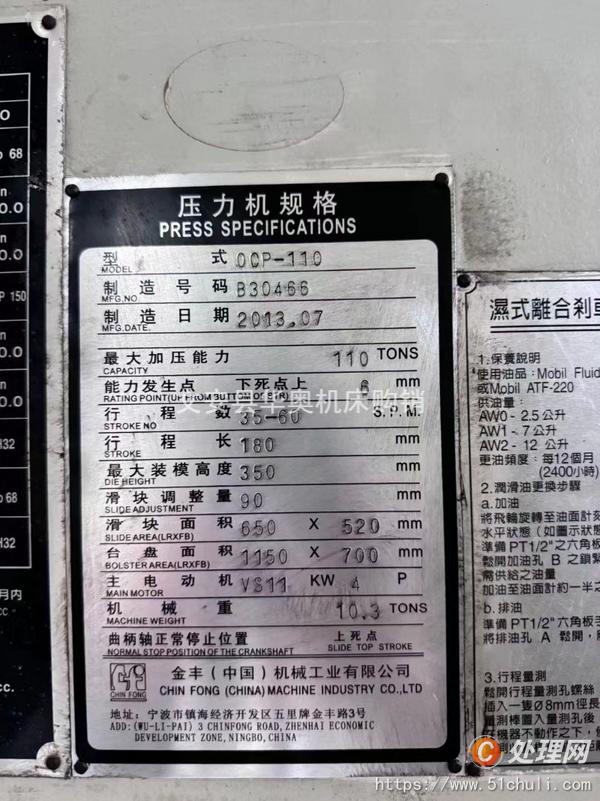 压力机规格
PRESS SPECIFICATIONS
型 式 OCP-110
MODEL
制造号码 B30466
MFG.NO
制造日期 2013.07
MFG.DATE.
最大加压能力 110 TONS
CAPACITY
能力发生点 下死点上 6 mm
RATING POINT(UP FROM BUTTOM OF STR)
行程数 35-60 S.P.M.
STROKE NO
行程长 180 mm
STROKE
最大装模高度 350 mm
DIE HEIGHT
滑块调整量 90 mm
SLIDE ADJUSTMENT
滑块面积 650 X 520 mm
SLIDE AREA(LRXFB)
台盘面积 1150 X 700 mm
BOLSTER AREA(LRXFB)
主电动机 VS11 KW 4 P
MAIN MOTOR
机械重 10.3 TONS
MACHINE WEIGHT
曲柄轴正常停止位置 上死点
NORMAL STOP POSITION OF THE CRANKSHAFT SLIDE TOP STROKE
CHIN FONG
金丰(中国)机械工业有限公司
CHIN FONG (CHINA) MACHINE INDUSTRY CO.,LTD
地址: 宁波市镇海经济开发区五里牌金丰路3号
ADD:(WU-LI-PAI) 3 CHINFONG ROAD,ZHENHAI ECONOMIC
DEVELOPMENT ZONE, NINGBO,CHINA
濕式離合刹車
1.保養說明
使用油品: Mobil Fluid
或Mobil ATF-220
供油量:
AW0 - 2.5 公升
AW1 - 7 公升
AW2 - 12 公升
更油頻度: 每12個月
(2400小時)
2.潤滑油更換步驟
a.加油
將飛輪旋轉至油面計刻
水平狀態(如圖示狀態
準備 PT1/2"之六角板
鬆開加油孔 B 之鎖緊
需供給之油量
加油至油面計約一半之
b.排油
準備 PT1/2"六角板手
將排油孔 A 鬆開,
3.行程量測
鬆開行程量測孔螺絲
插入一隻Ø8mm徑長
量測棒置入量測孔後
在機器不動作之下,
C处理网
https://www.51chuli.com